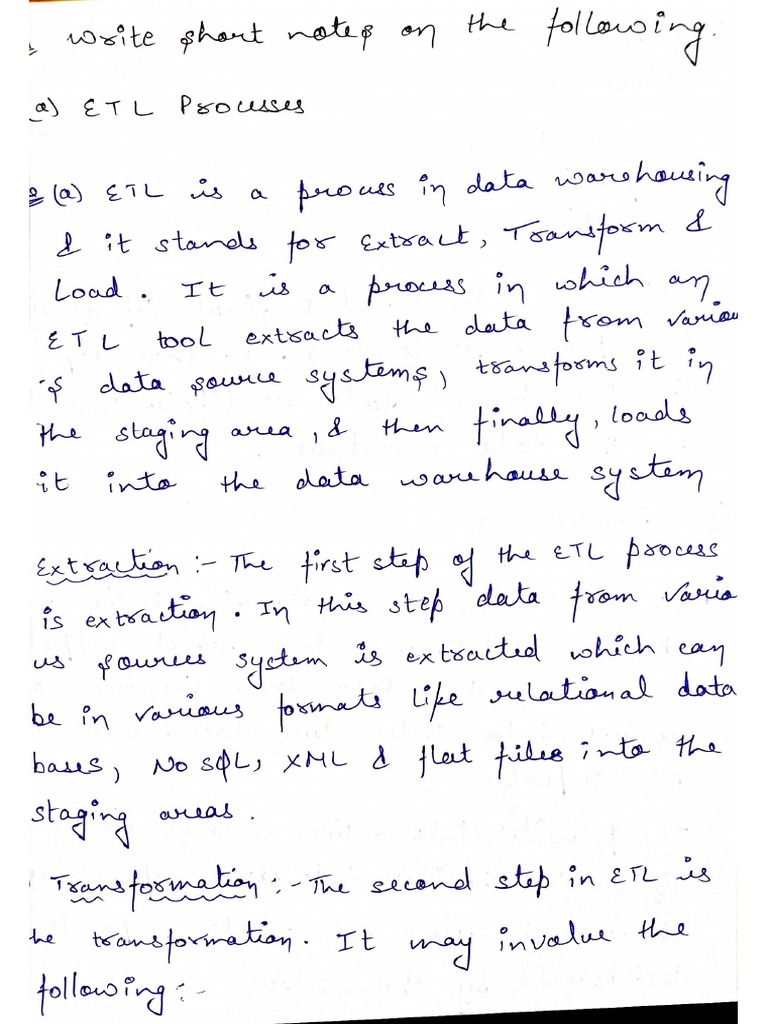 write short notes on the following.
(a) ETL Processes
(a) ETL is a process in data warehousing
& it stands for Extract, Transform &
Load. It is a process in which an
ETL tool extracts the data from variou
s data source systems, transforms it in
the staging area, & then finally, loads
it into the data warehouse system
Extraction :- The first step of the ETL process
is extraction. In this step data from vario
us sources system is extracted which can
be in various formats like relational data
bases, No SQL, XML & flat files into the
staging areas.
Transformation :- The second step in ETL is
he transformation. It may involve the
following :-